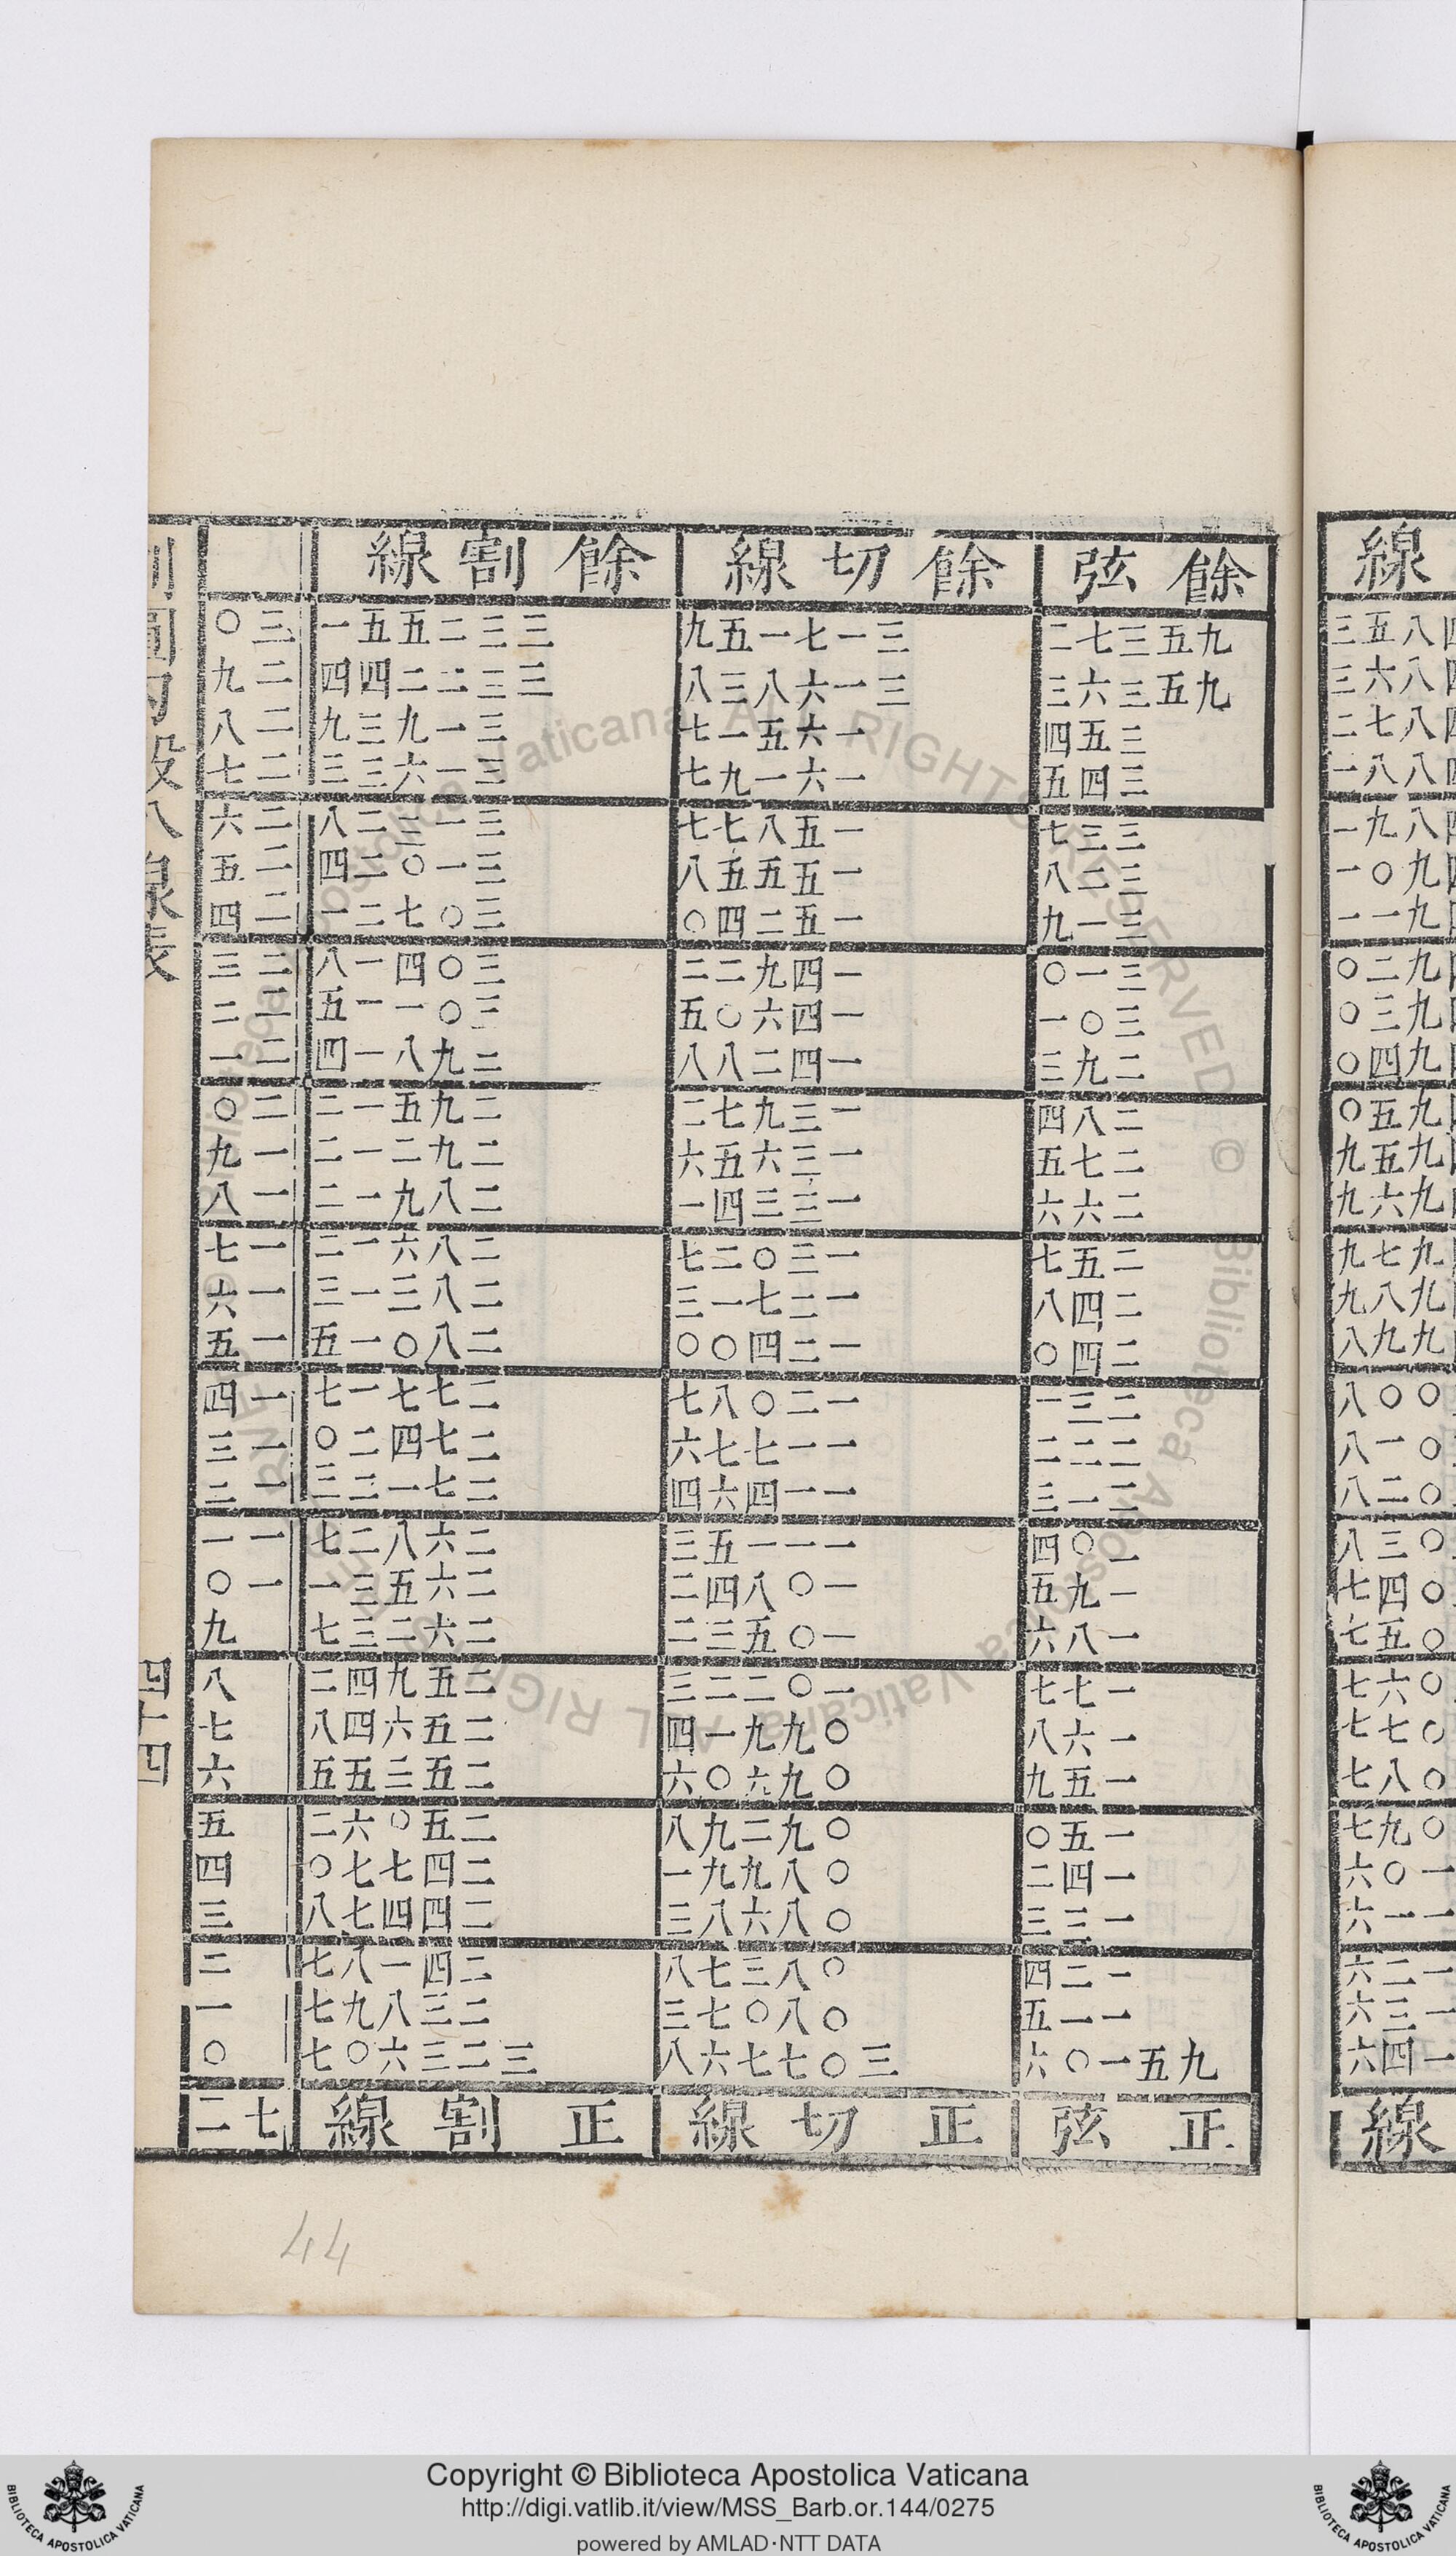 線
八五三
八六三
八七二
八八一
八九一
九〇一
九一一
九二〇
九三〇
九四〇
九五〇
九五九
九六九
九七九
九八九
九九八
〇〇八
〇一八
〇二八
〇三八
〇四七
〇五七
〇六七
〇七七
〇八七
〇九七
一〇六
一一六
一二六
一三六
一四六
線
餘弦 餘切線 餘割線
九五三七二 三一七一五九 三三二五五一 三〇
九五三六三 三一六八三八 三三二二四四 二九
三五四 一六五一七 三一九三九 二八
三四五 一六一九七 三一六三三 二七
三三七 一五八七七 三一三二八 二六
三二八 一五五五八 三一〇二四 二五
三一九 一五二四〇 三〇七二一 二四
三一〇 一四九二二 三〇四一八 二三
三〇一 一四六〇五 三〇一一五 二二
二九三 一四二八八 二九八一四 二一
二八四 一三九七二 二九五一二 二〇
二七五 一三六五六 二九二一二 一九
二六六 一三三四一 二八九一二 一八
二五七 一三〇二七 二八六一二 一七
二四八 一二七一三 二八三一三 一六
二四〇 一二四〇〇 二八〇一五 一五
二三一 一二〇八七 二七七一七 一四
二二二 一一七七六 二七四二〇 一三
二一三 一一四六四 二七一二三 一二
二〇四 一一一五三 二六八二七 一一
一九五 一〇八四二 二六五三一 一〇
一八六 一〇五三二 二六二三七 九
一七七 一〇二二三 二五九四二 八
一六八 〇九九一四 二五六四八 七
一五九 〇九六〇六 二五三五五 六
一五〇 〇九二九八 二五〇六二 五
一四二 〇八九九一 二四七七〇 四
一三三 〇八六八三 二四四七八 三
一二四 〇八三七八 二四一八七 二
一一五 〇八〇七三 二三八九七 一
九五一〇六 三〇七七六八 三二三六〇七 〇
正弦 正切線 正割線 七二
割圓勾股八線表 四十四
44
Copyright © Biblioteca Apostolica Vaticana
http://digi.vatlib.it/view/MSS_Barb.or.144/0275
powered by AMLAD·NTT DATA
BIBLIOTECA APOSTOLICA VATICANA
BIBLIOTECA APOSTOLICA VATICANA